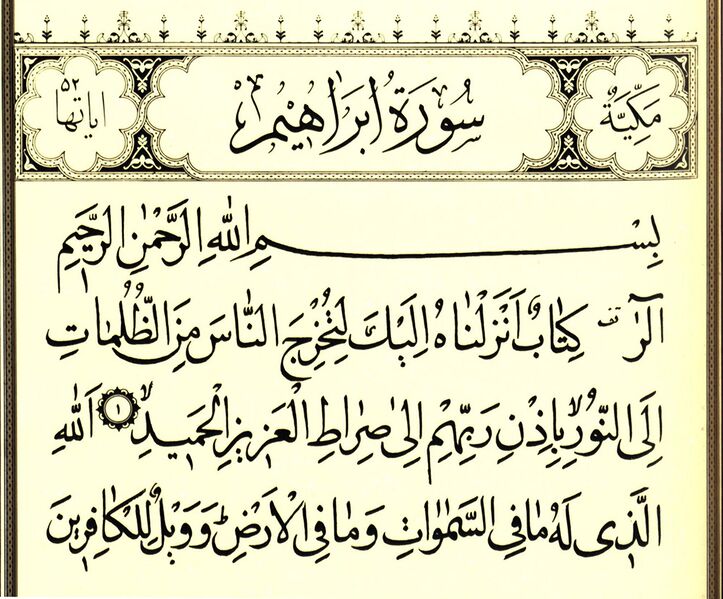 مَكِّيَّةٌ سُورَةُ اِبْرَاهٖيمَ اٰيَاتُهَا ٥٢
بِسْمِ اللّٰهِ الرَّحْمٰنِ الرَّحٖيمِ
الٓرٰ ࣞ كِتَابٌ اَنْزَلْنَاهُ اِلَيْكَ لِتُخْرِجَ النَّاسَ مِنَ الظُّلُمَاتِ
اِلَى النُّورِ بِاِذْنِ رَبِّهِمْ اِلٰى صِرَاطِ الْعَزٖيزِ الْحَمٖيدِۙ ١ اَللّٰهِ
الَّذٖى لَهُ مَا فِى السَّمٰوَاتِ وَمَا فِى الْاَرْضِؕ وَوَيْلٌ لِلْكَافِرٖينَ